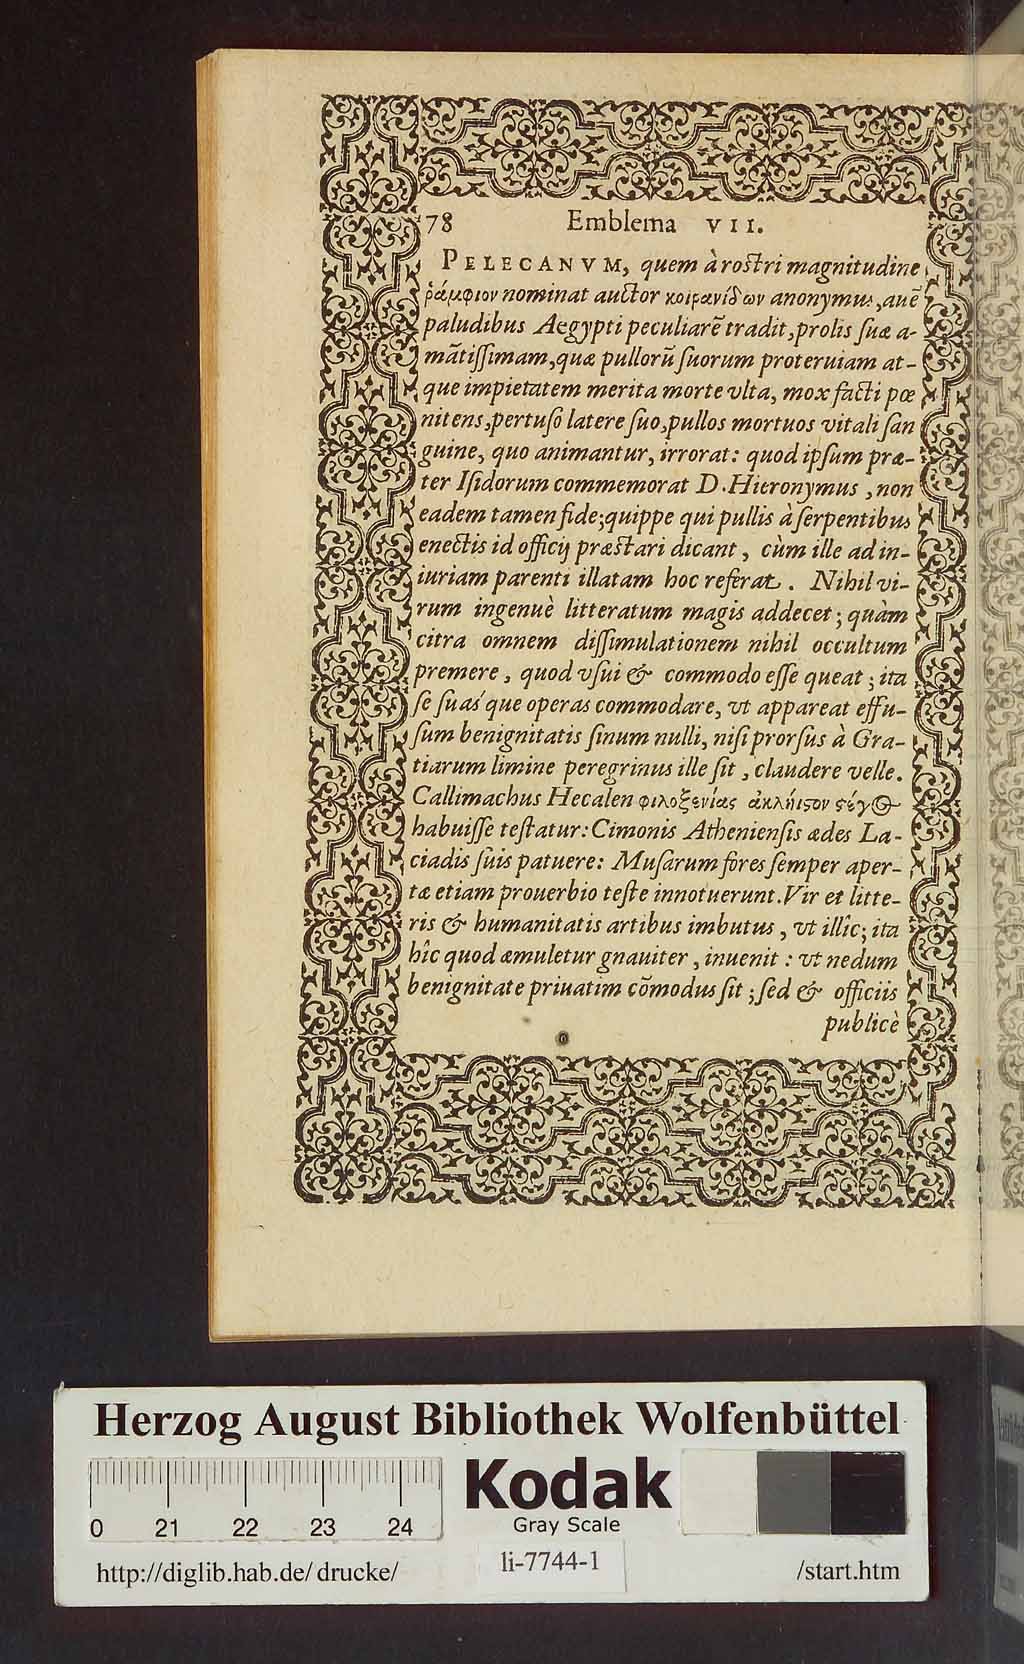 78 Emblema VII.
PELECANVM, quem à rostri magnitudine
ῥάμφιον nominat auctor κοιρανίδων anonymus, auē
paludibus Aegypti peculiarē tradit, prolis suæ a-
mãtissimam, quæ pullorũ suorum proteruiam at-
que impietatem merita morte vlta, mox facti pœ
nitens, pertuso latere suo, pullos mortuos vitali san
guine, quo animantur, irrorat: quod ipsum præ-
ter Isidorum commemorat D. Hieronymus, non
eadem tamen fide; quippe qui pullis à serpentibus
enectis id officij præstari dicant, cùm ille ad in-
iuriam parenti illatam hoc referat. Nihil vi-
rum ingenuè litteratum magis addecet; quàm
citra omnem dissimulationem nihil occultum
premere, quod vsui & commodo esse queat; ita
se suaśque operas commodare, vt appareat effu-
sum benignitatis sinum nulli, nisi prorsus à Gra-
tiarum limine peregrinus ille sit, claudere velle.
Callimachus Hecalen φιλοξενίας ἀκλήιϛον ϛέγος
habuisse testatur: Cimonis Atheniensis ædes La-
ciadis suis patuere: Musarum fores semper aper-
tæ etiam prouerbio teste innotuerunt. Vir et litte-
ris & humanitatis artibus imbutus, vt illîc; ita
hîc quod æmuletur gnauiter, inuenit: vt nedum
benignitate priuatim cõmodus sit; sed & officiis
publicè
Herzog August Bibliothek Wolfenbüttel
0 21 22 23 24
Kodak
Gray Scale
http://diglib.hab.de/drucke/ li-7744-1 /start.htm